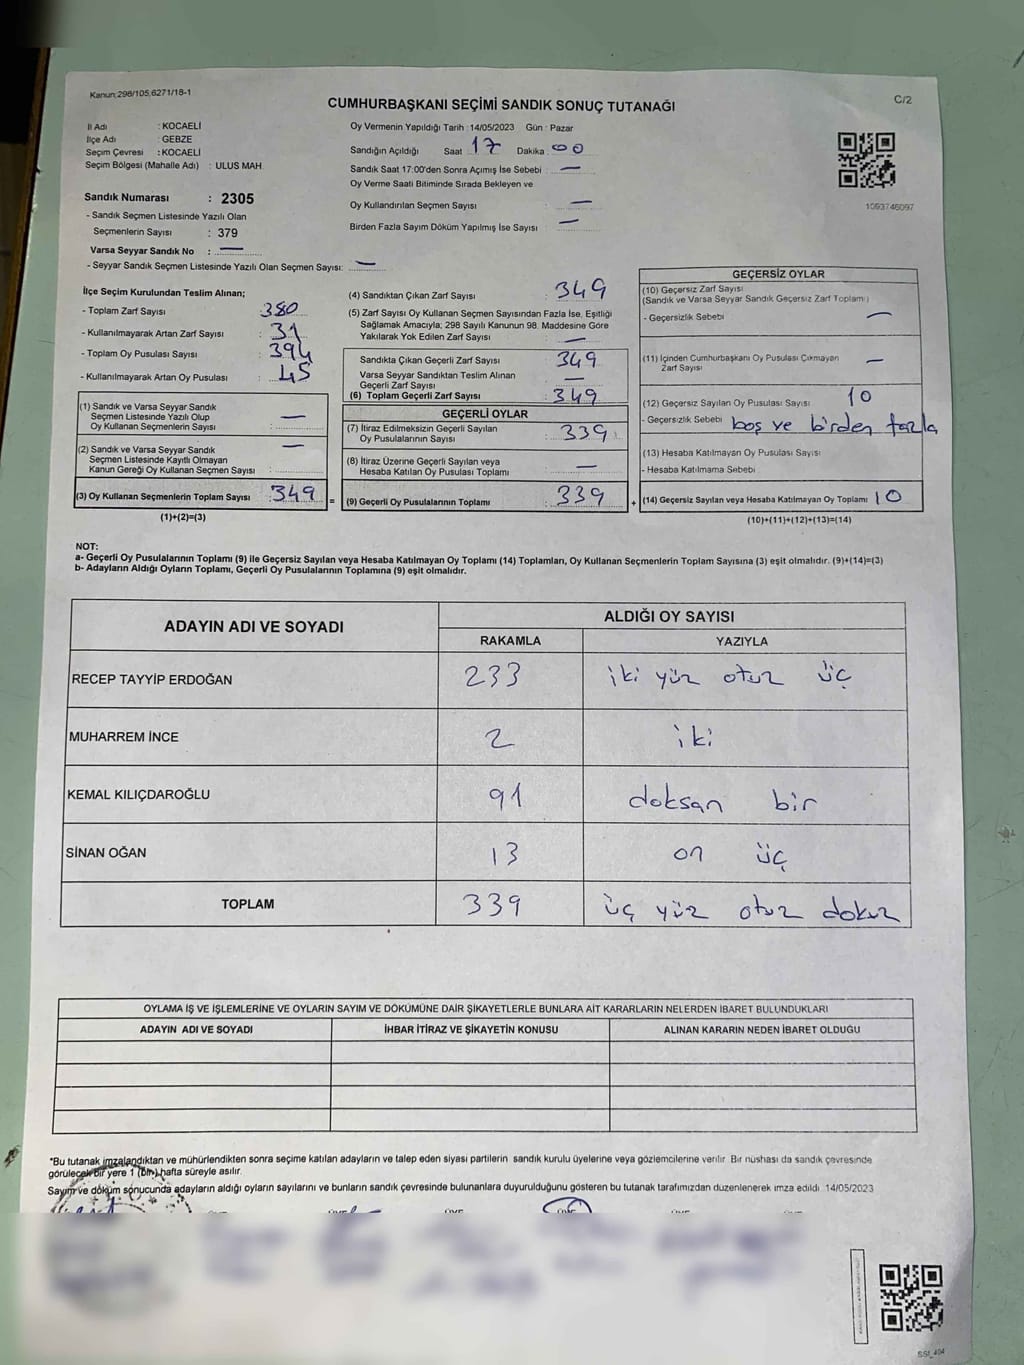 Kanun:298/105,6271/18-1
C/2
CUMHURBAŞKANI SEÇİMİ SANDIK SONUÇ TUTANAĞI
İl Adı : KOCAELİ
İlçe Adı : GEBZE
Seçim Çevresi : KOCAELİ
Seçim Bölgesi (Mahalle Adı) : ULUS MAH.
Sandık Numarası : 2305
- Sandık Seçmen Listesinde Yazılı Olan
Seçmenlerin Sayısı : 379
Varsa Seyyar Sandık No : —
- Seyyar Sandık Seçmen Listesinde Yazılı Olan Seçmen Sayısı: —
Oy Vermenin Yapıldığı Tarih : 14/05/2023 Gün : Pazar
Sandığın Açıldığı Saat 17 Dakika 00
Sandık Saat 17:00'den Sonra Açımış İse Sebebi : —
Oy Verme Saati Bitiminde Sırada Bekleyen ve
Oy Kullandırılan Seçmen Sayısı —
Birden Fazla Sayım Döküm Yapılmış İse Sayısı : —
1093746097
İlçe Seçim Kurulundan Teslim Alınan;
- Toplam Zarf Sayısı : 380
- Kullanılmayarak Artan Zarf Sayısı : 31
- Toplam Oy Pusulası Sayısı : 394
- Kullanılmayarak Artan Oy Pusulası : 45
(1) Sandık ve Varsa Seyyar Sandık
Seçmen Listesinde Yazılı Olup
Oy Kullanan Seçmenlerin Sayısı : —
(2) Sandık ve Varsa Seyyar Sandık
Seçmen Listesinde Kayıtlı Olmayan
Kanun Gereği Oy Kullanan Seçmen Sayısı : —
(3) Oy Kullanan Seçmenlerin Toplam Sayısı : 349
(1)+(2)=(3)
(4) Sandıktan Çıkan Zarf Sayısı : 349
(5) Zarf Sayısı Oy Kullanan Seçmen Sayısından Fazla İse, Eşitliği
Sağlamak Amacıyla; 298 Sayılı Kanunun 98. Maddesine Göre
Yakılarak Yok Edilen Zarf Sayısı : —
Sandıkta Çıkan Geçerli Zarf Sayısı : 349
Varsa Seyyar Sandıktan Teslim Alınan
Geçerli Zarf Sayısı : —
(6) Toplam Geçerli Zarf Sayısı : 349
GEÇERLİ OYLAR
(7) İtiraz Edilmeksizin Geçerli Sayılan
Oy Pusulalarının Sayısı : 339
(8) İtiraz Üzerine Geçerli Sayılan veya
Hesaba Katılan Oy Pusulası Toplamı : —
= (9) Geçerli Oy Pusulalarının Toplamı : 339 +
GEÇERSİZ OYLAR
(10) Geçersiz Zarf Sayısı
(Sandık ve Varsa Seyyar Sandık Geçersiz Zarf Toplamı)
- Geçersizlik Sebebi —
(11) İçinden Cumhurbaşkanı Oy Pusulası Çıkmayan —
Zarf Sayısı
(12) Geçersiz Sayılan Oy Pusulası Sayısı 10
- Geçersizlik Sebebi boş ve birden fazla
(13) Hesaba Katılmayan Oy Pusulası Sayısı
- Hesaba Katılmama Sebebi
(14) Geçersiz Sayılan veya Hesaba Katılmayan Oy Toplamı 10
(10)+(11)+(12)+(13)=(14)
NOT:
a- Geçerli Oy Pusulalarının Toplamı (9) ile Geçersiz Sayılan veya Hesaba Katılmayan Oy Toplamı (14) Toplamları, Oy Kullanan Seçmenlerin Toplam Sayısına (3) eşit olmalıdır. (9)+(14)=(3)
b- Adayların Aldığı Oyların Toplamı, Geçerli Oy Pusulalarının Toplamına (9) eşit olmalıdır.
ADAYIN ADI VE SOYADI
ALDIĞI OY SAYISI
RAKAMLA YAZIYLA
RECEP TAYYİP ERDOĞAN 233 iki yüz otuz üç
MUHARREM İNCE 2 iki
KEMAL KILIÇDAROĞLU 91 doksan bir
SİNAN OĞAN 13 on üç
TOPLAM 339 üç yüz otuz dokuz
OYLAMA İŞ VE İŞLEMLERİNE VE OYLARIN SAYIM VE DÖKÜMÜNE DAİR ŞİKAYETLERLE BUNLARA AİT KARARLARIN NELERDEN İBARET BULUNDUKLARI
ADAYIN ADI VE SOYADI İHBAR İTİRAZ VE ŞİKAYETİN KONUSU ALINAN KARARIN NEDEN İBARET OLDUĞU
*Bu tutanak imzalandıktan ve mühürlendikten sonra seçime katılan adayların ve talep eden siyasi partilerin sandık kurulu üyelerine veya gözlemcilerine verilir. Bir nüshası da sandık çevresinde
görülecek bir yere 1 (bir) hafta süreyle asılır.
Sayım ve döküm sonucunda adayların aldığı oyların sayılarını ve bunların sandık çevresinde bulunanlara duyurulduğunu gösteren bu tutanak tarafımızdan düzenlenerek imza edildi. 14/05/2023